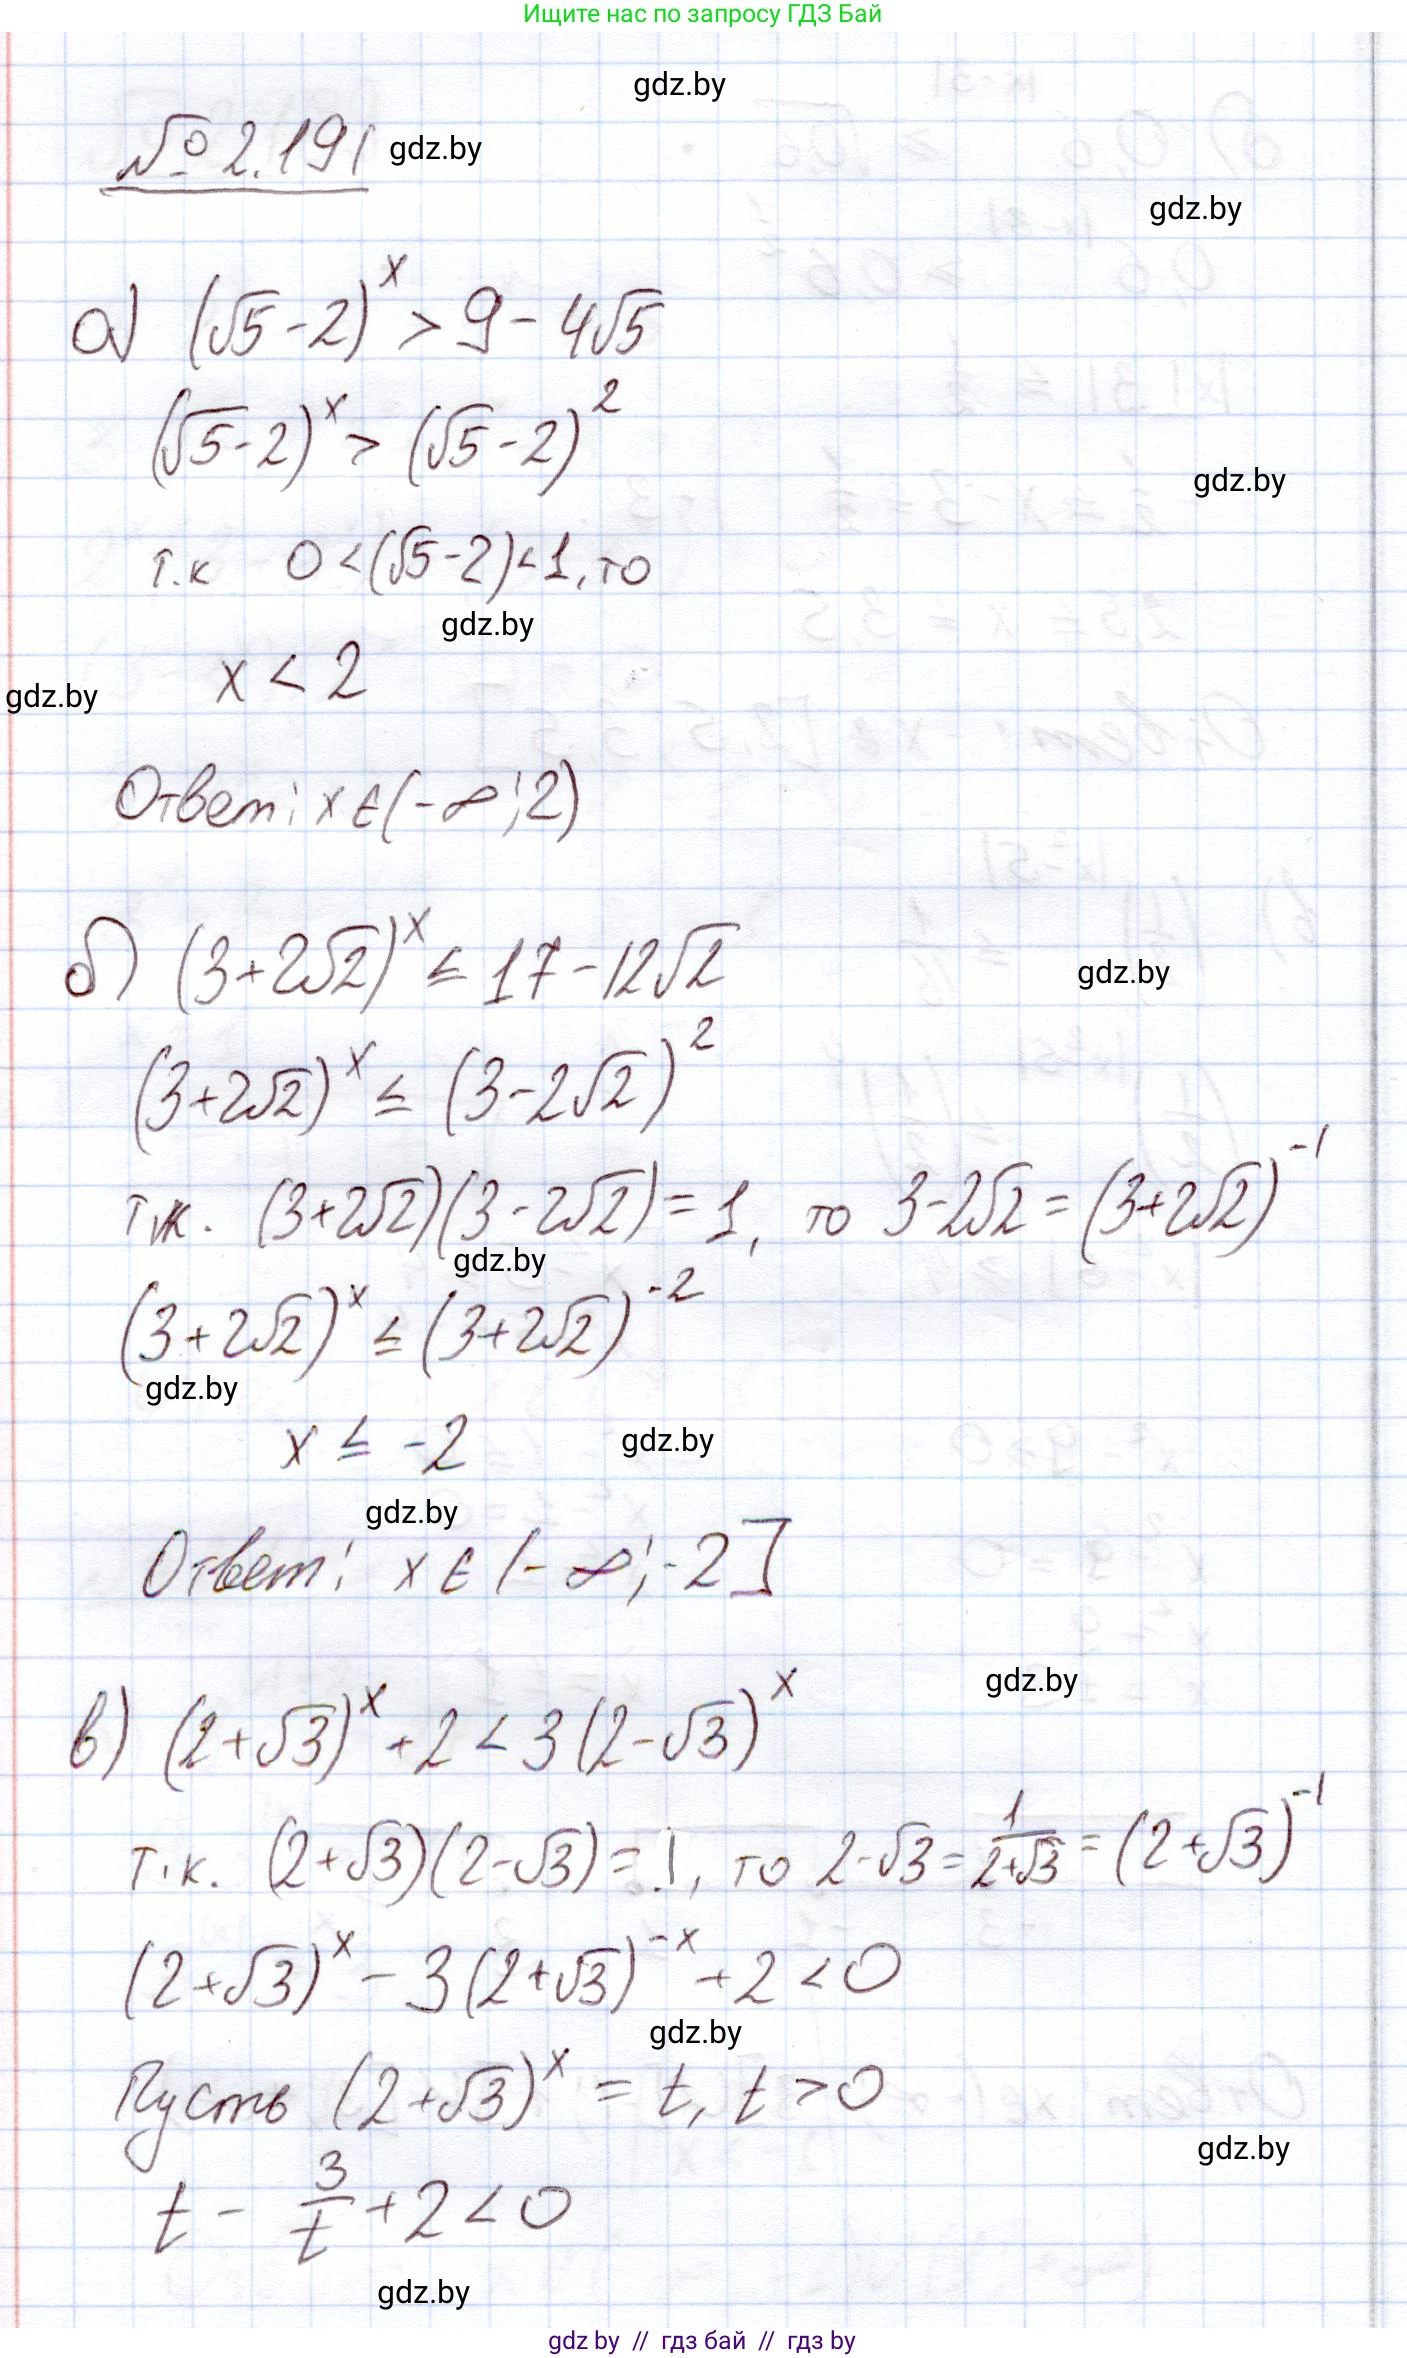 Ищите нас по запросу ГДЗ Бай
gdz.by
№ 2.191 gdz.by
gdz.by
а) (√5-2)^x > 9 - 4√5
(√5-2)^x > (√5-2)^2
gdz.by
т.к 0 < (√5-2) < 1, то
gdz.by
x < 2
gdz.by
Ответ: x ∈ (-∞; 2)
б) (3+2√2)^x ≤ 17 - 12√2
gdz.by
(3+2√2)^x ≤ (3-2√2)^2
т.к. (3+2√2)(3-2√2) = 1, то 3-2√2 = (3+2√2)^-1
gdz.by
(3+2√2)^x ≤ (3+2√2)^-2
gdz.by
x ≤ -2
gdz.by
gdz.by
Ответ: x ∈ (-∞; -2]
gdz.by
в) (2+√3)^x + 2 < 3(2-√3)^x
т.к. (2+√3)(2-√3) = 1, то 2-√3 = 1/(2+√3) = (2+√3)^-1
(2+√3)^x - 3(2+√3)^-x + 2 < 0
gdz.by
Пусть (2+√3)^x = t, t > 0
gdz.by
t - 3/t + 2 < 0
gdz.by
gdz by // гдз бай // гдз by